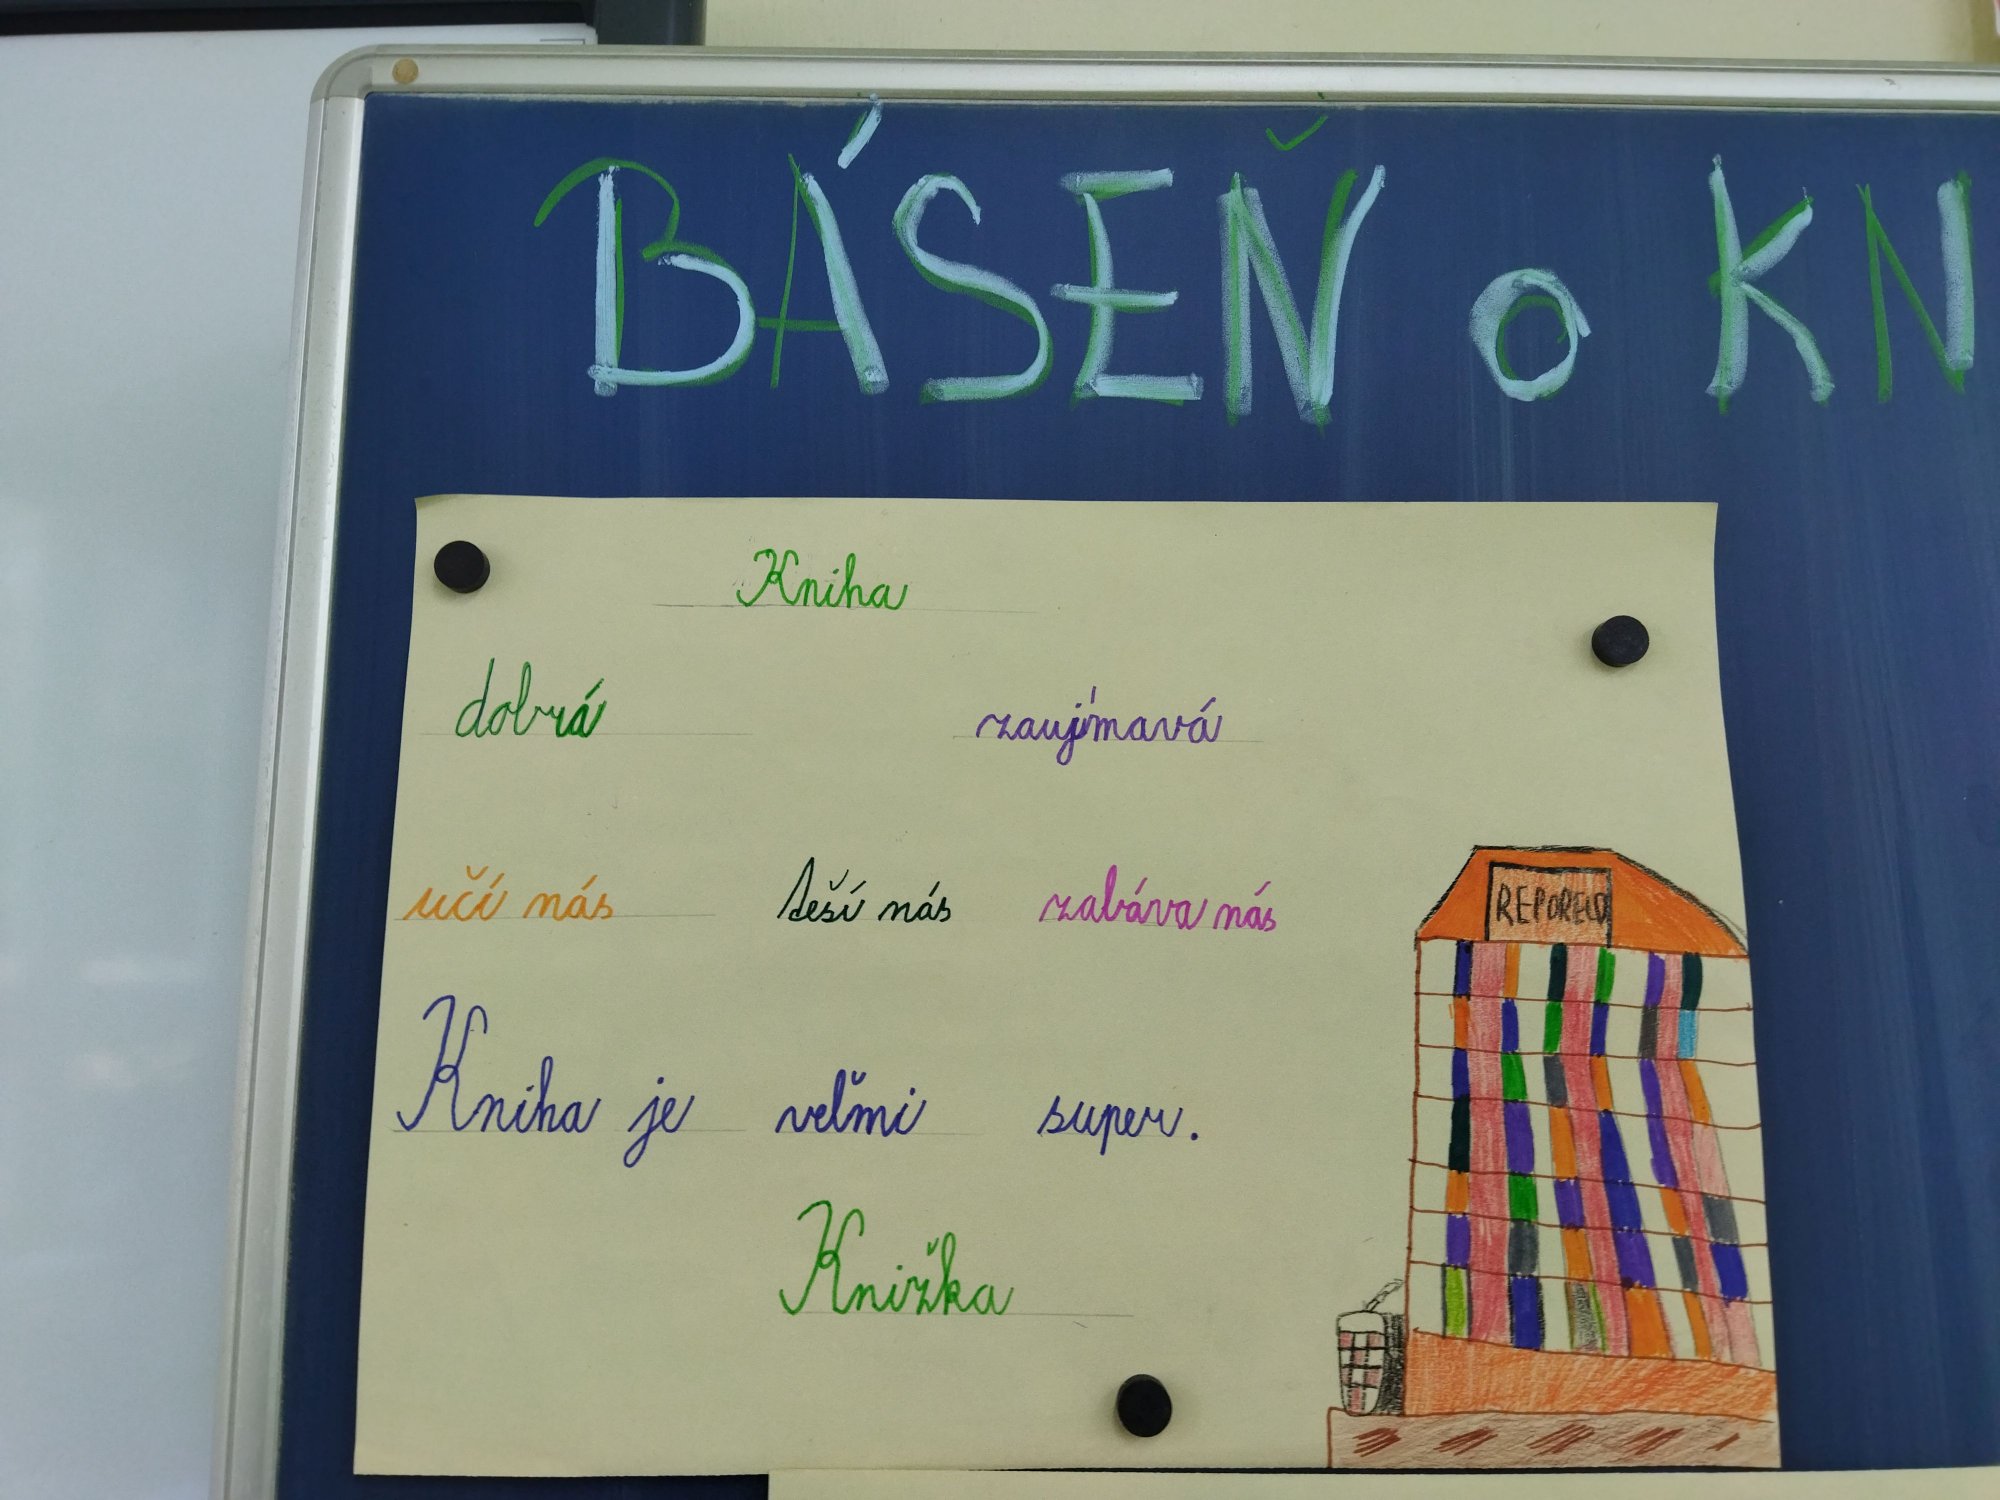 BÁSEŇ o KN
Kniha
dobrá zaujímavá
učí nás teší nás zabáva nás
REPORELO
Kniha je veľmi super.
Knižka